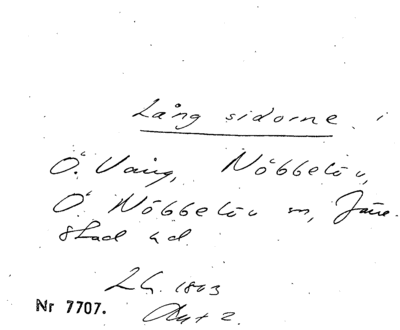 Lång sidorne i
Ö. Vång, Nöbbelöv,
Ö. Nöbbelöv m, Järe-
stad hd
1803
Nr 7707.